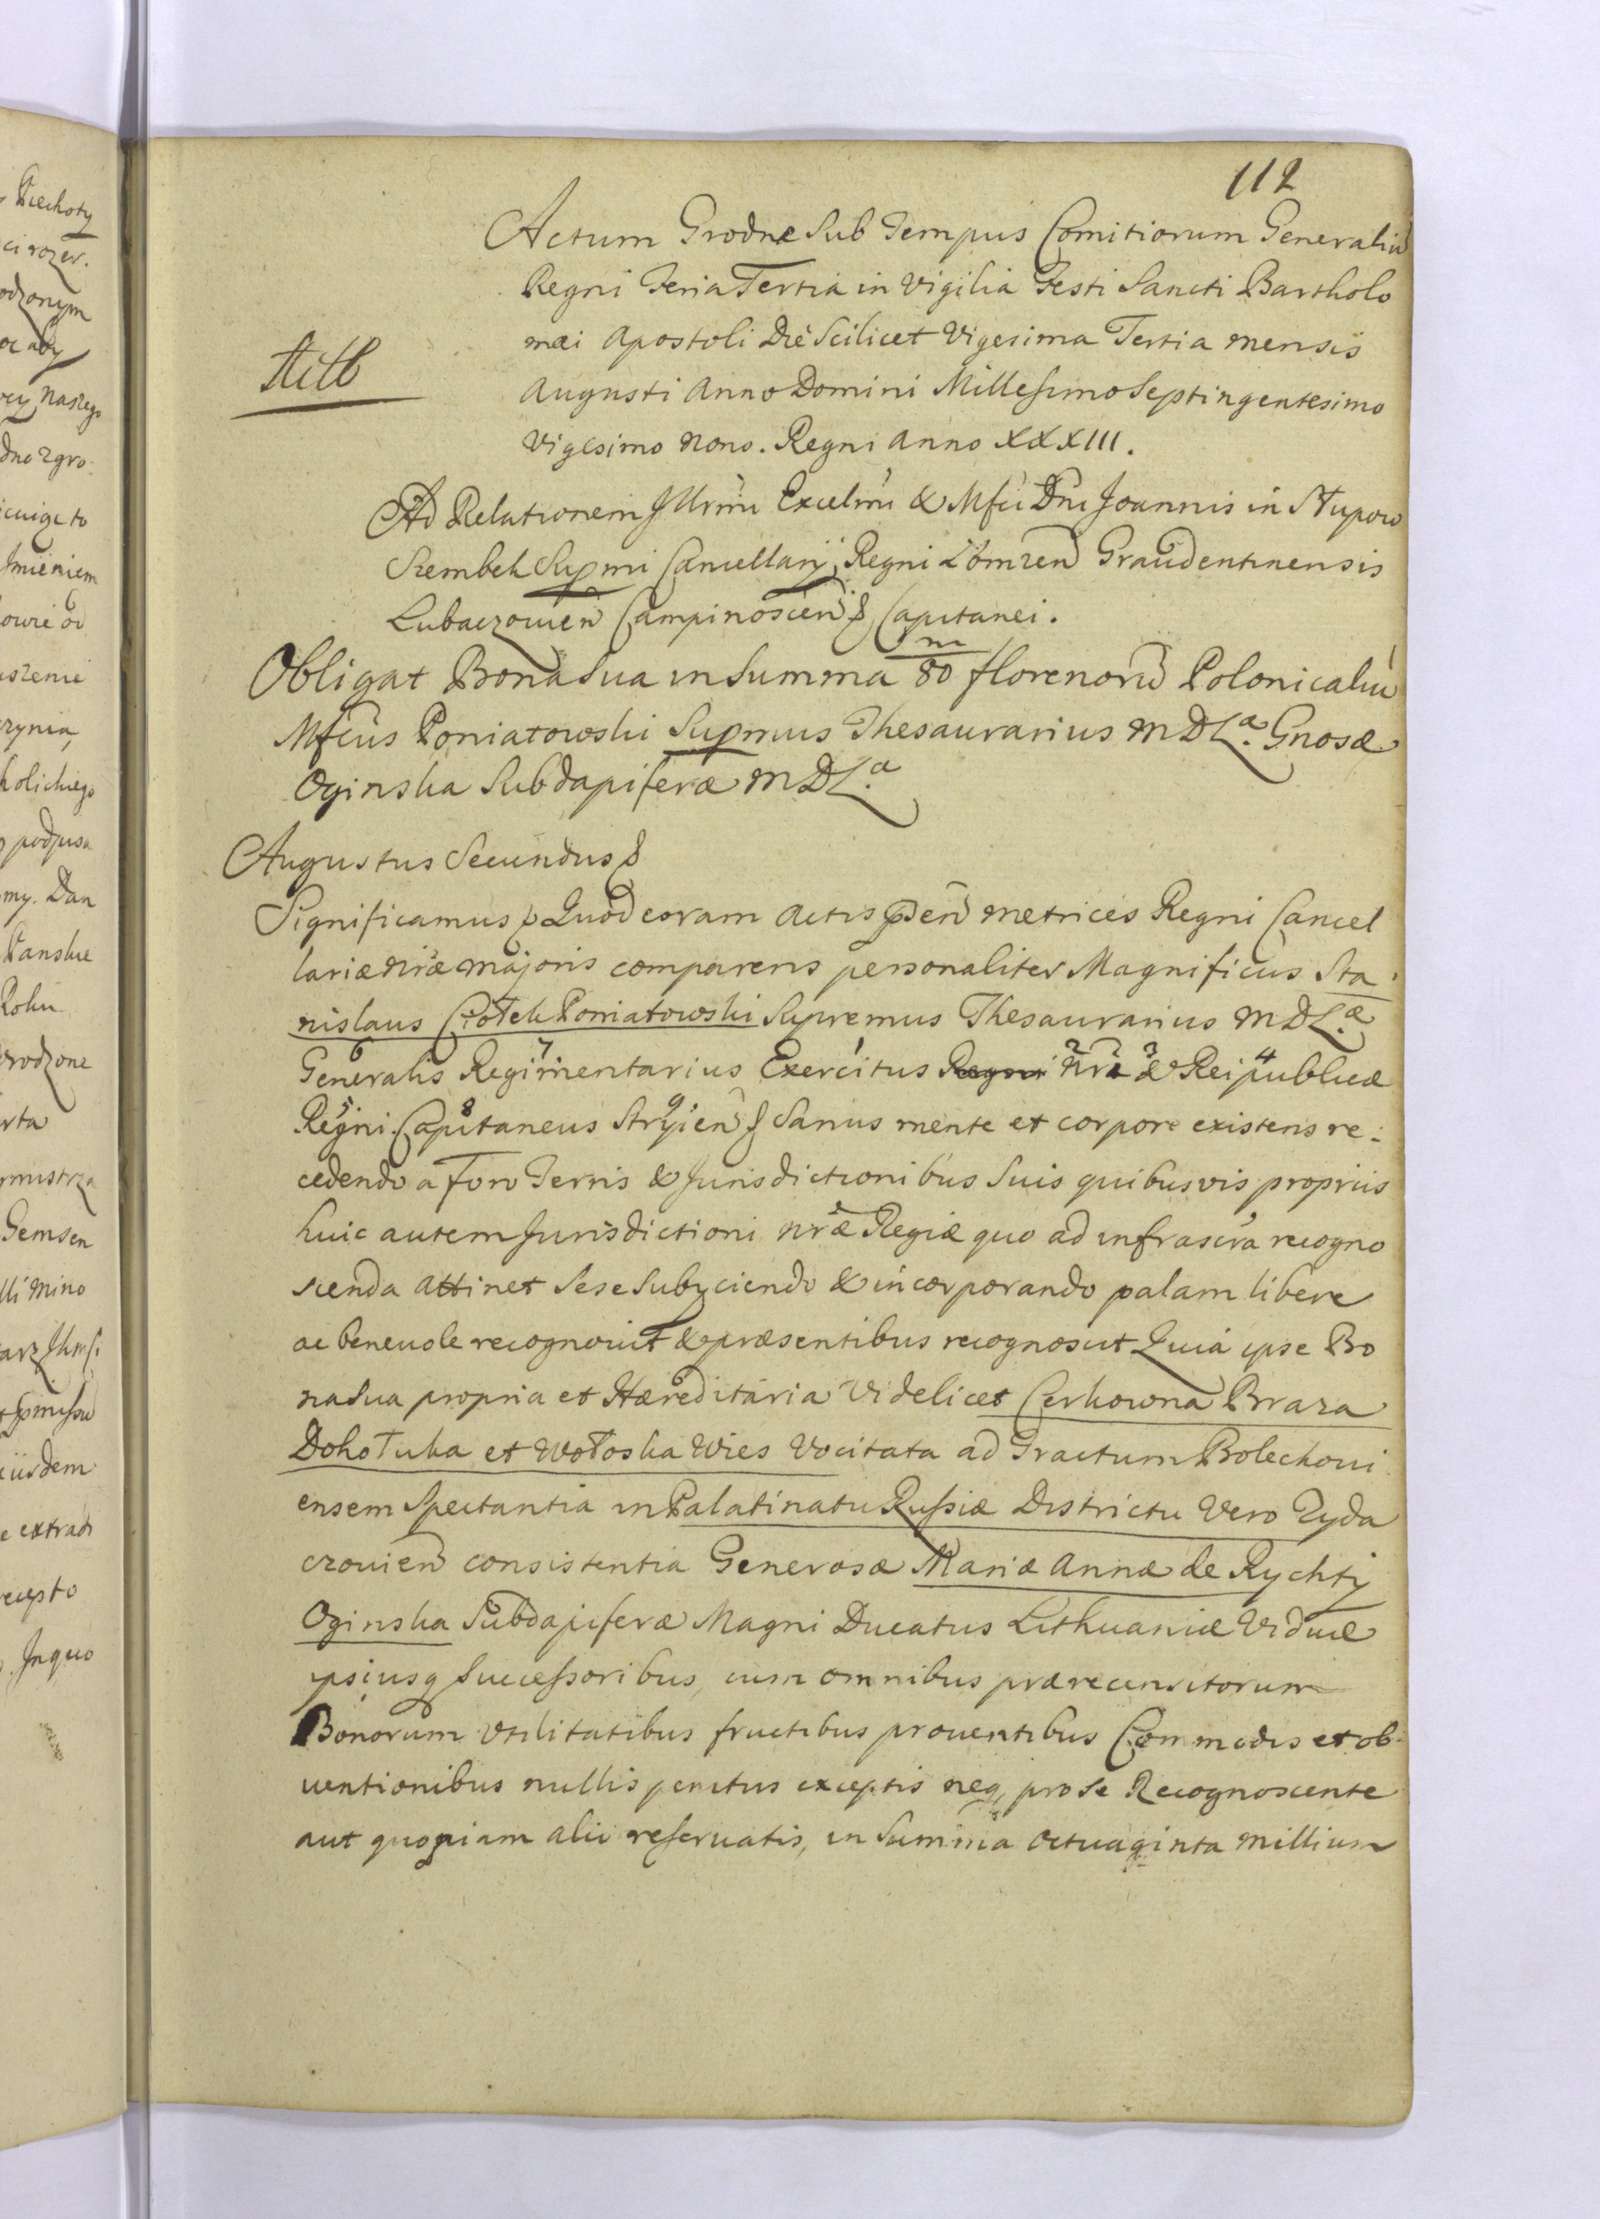 Piechoty
ci rozer.
odzonym
oc aby
Naszego
dno zgro
Imieniem
owie od
uszenie
rzynia
holickiego
podpisa
my. Dan
Rolu
rodzone
rta
rmistrza
Gemsen
lli mino
eiusdem
e extradi
recepto
Inquo
112
Actum Grodnæ Sub Tempus Comitiorum Generaliũ
Regni Feria Tertia in Vigilia Festi Sancti Bartholo
mæi Apostoli Die Scilicet Vigesima Tertia mensis
Augusti Anno Domini Millesimo Septingentesimo
Vigesimo Nono. Regni Anno XXXIII.
Ad Relationem Illrmi Excelmi & Mfci Dni Joannis in Słupow
Szembek Supmi Cancellarij Regni Łomzen Graudentinensis
Lubaczouien Campinoscen & Capitanei.
Obligat Bona Sua in Summa 80 m florenorũ Polonicaliũ
Mfcus Poniatowski Supmus Thesaurarius MDL.æ Gnosæ
Oginska Subdapiferæ MDL.æ
Augustus Secundus &
Significamus & Quod coram Actis pden Metrices Regni Cancel
lariæ nræ majoris comparens personaliter Magnificus Sta
nislaus Ciołek Poniatowski Supremus Thesaurarius MDL.æ
6 7 1 2 3 4
Generalis Regimentarius Exercitus Regni Nri & Reipublicæ
5 8 9
Regni Capitaneus Stryien & Sanus mente et corpore existens re:
cedendo a foro Terris & Jurisdictionibus Suis quibusvis proprijs
huic autem Jurisdictioni nræ Regiæ quo ad infrascra recogno
scenda attinet Sese Subijciendo & incorporando palam libere
ac beneuole recognouit & præsentibus recognoscit Quia ipse Bo
na Sua propria et Hæreditaria Videlicet Cerkowna Braza
Dohołuka et Wołoska Wies Vocitata ad Tractum Bolechoui
ensem Spectantia in Palatinatu Russiæ Districtu Vero Zyda
czouien consistentia Generosæ Mariæ Annæ de Rychty
Oginska Subdapiferæ Magni Ducatus Lithuaniæ Viduæ
ipsiusq Successoribus, cum omnibus prærecensitorum
Bonorum Utilitatibus fructibus prouentibus Commodis et ob
uentionibus nullis penitus exceptis neq, pro se Recognoscente
aut quopiam alio reseruatis, in Summa Octuaginta Millium